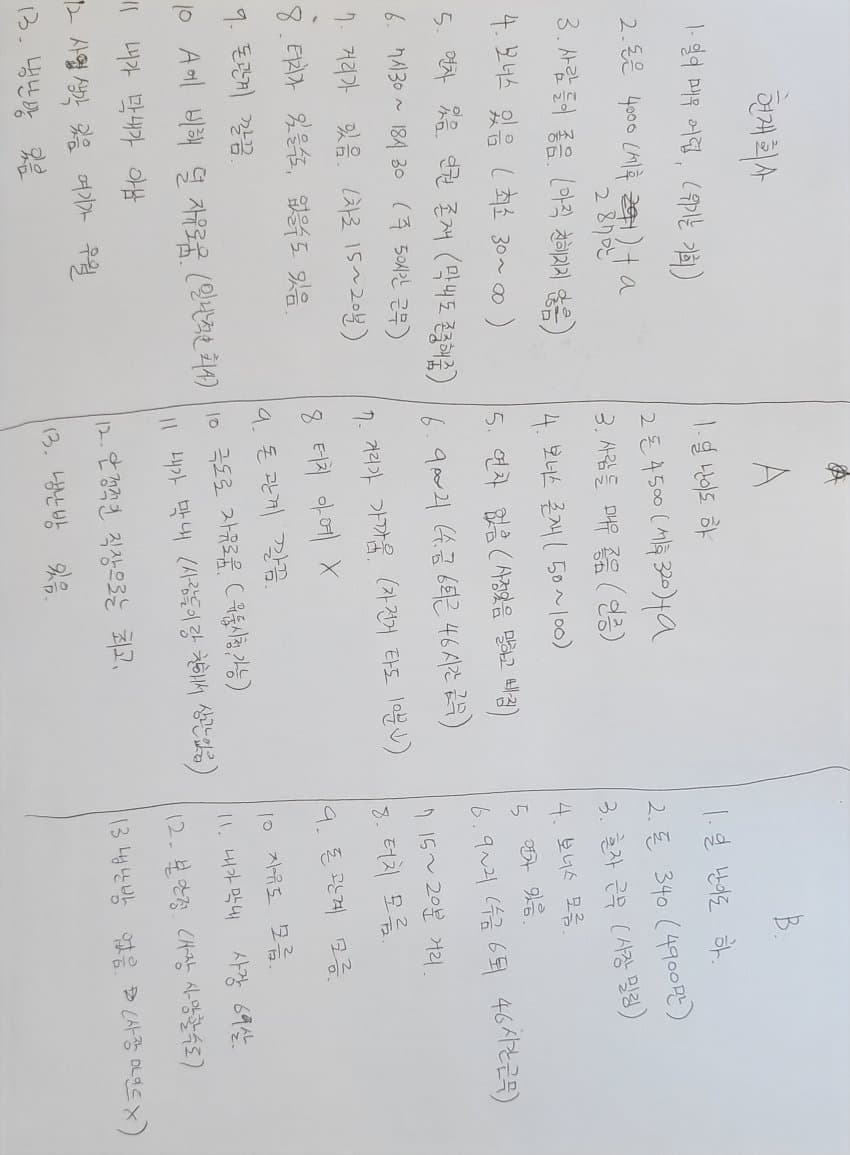 현재회사
1. 일이 매우 어렵, (위기는 기회)
2. 돈은 4000 (세후 281만) + α
3. 사람들이 좋음. (아직 친해지지 않음)
4. 보너스 있음 (최소 30~∞)
5. 연차 있음. 인권 존재 (막내도 존중해줌)
6. 7시30~18시30 (주 50시간 근무)
7. 거리가 있음. (차로 15~20분)
8. 터치가 있을수도, 없을수도 있음.
9. 돈관계 깔끔.
10 A에 비해 덜 자유로움. (일반적인 회사)
11 내가 막내가 아님
12. 사업성 있음 여기가 우월
13. 냉난방 있음
A
1. 일 난이도 하
2 돈 4500 (세후 320)+α
3. 사람들 매우 좋음 (인증)
4. 보너스 존재 (50~100)
5. 연차 없음 (사정있음 말하고 빠짐)
6. 9~7 (수금 6퇴근 46시간 근무)
7. 거리가 가까움. (자전거 타도 10분↓)
8 터치 아예 X
9. 돈 관계 깔끔.
10 극도로 자유로움. (유튭시청가능)
11 내가 막내 (사람들이랑 친해서 상관없음)
12. 안정적인 직장으로는 최고.
13. 냉난방 있음.
B.
1. 일 난이도 하.
2. 돈 340 (4900만)
3. 혼자 근무 (사장 밀림)
4. 보너스 모름.
5 연차 있음.
6. 9~7 (수금 6퇴 46시간근무)
7 15~20분 거리.
8. 터치 모름.
9. 돈 관계 모름.
10 자유도 모름.
11. 내가막내 사장 69살.
12. 불안정. (사장 사망할수도)
13 냉난방 없음. (사장 마인드 X)